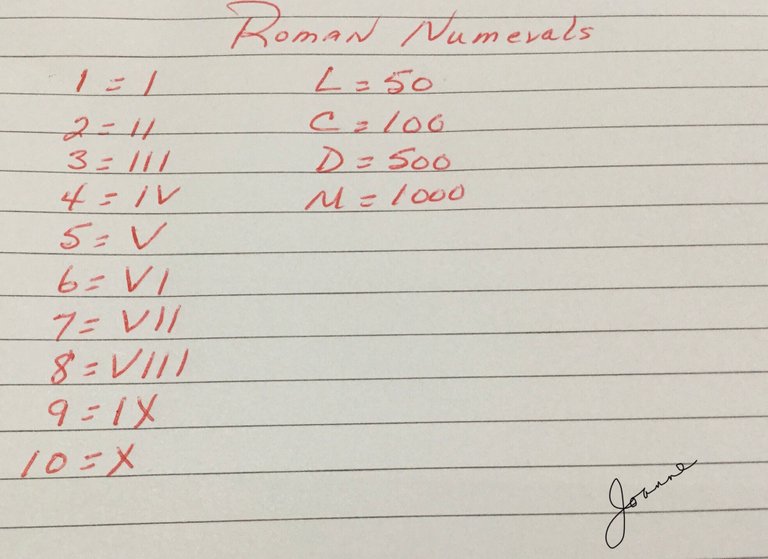 Roman Numerals
1 = I
2 = II
3 = III
4 = IV
5 = V
6 = VI
7 = VII
8 = VIII
9 = IX
10 = X
L = 50
C = 100
D = 500
M = 1000
Joanne